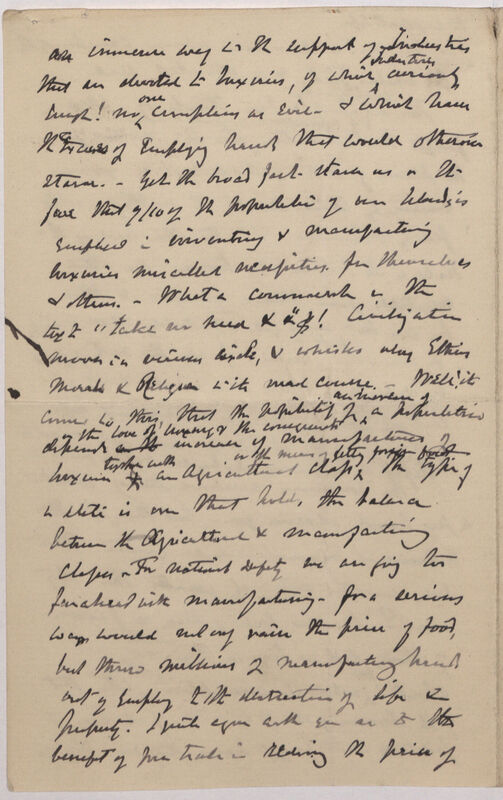 an immense way to the support of industries
that are devoted to luxuries, of which industries curiously
enough! no one complains as evil - & which have
the excuse of employing hands that would otherwise
starve. - Yet the broad fact stares us in the
face that 9/10 of the population of our Islands is
employed in inventing & manufacturing
luxuries miscalled necessities for themselves
& others. - What a commentary on the
text "take no heed &c &c"! Civilization
moves in vicious circle, & whisks along Ethics
Morals & Religion in its mad course. - Well! it
comes to this, that the possibility of an increase of a population
depends in the love of luxury & the consequent increase of manufactures of
luxuries together with an Agricultural class, the type of
a state is one that holds the balance
between the Agricultural & manufacturing
classes - For national safety we are going too
far ahead with manufacturing - for a serious
war would not only raise the price of food,
but throw millions of manufacturing hands
out of employ to the destruction of life &
property. I quite agree with you as to the
benefit of free trade in reducing the price of